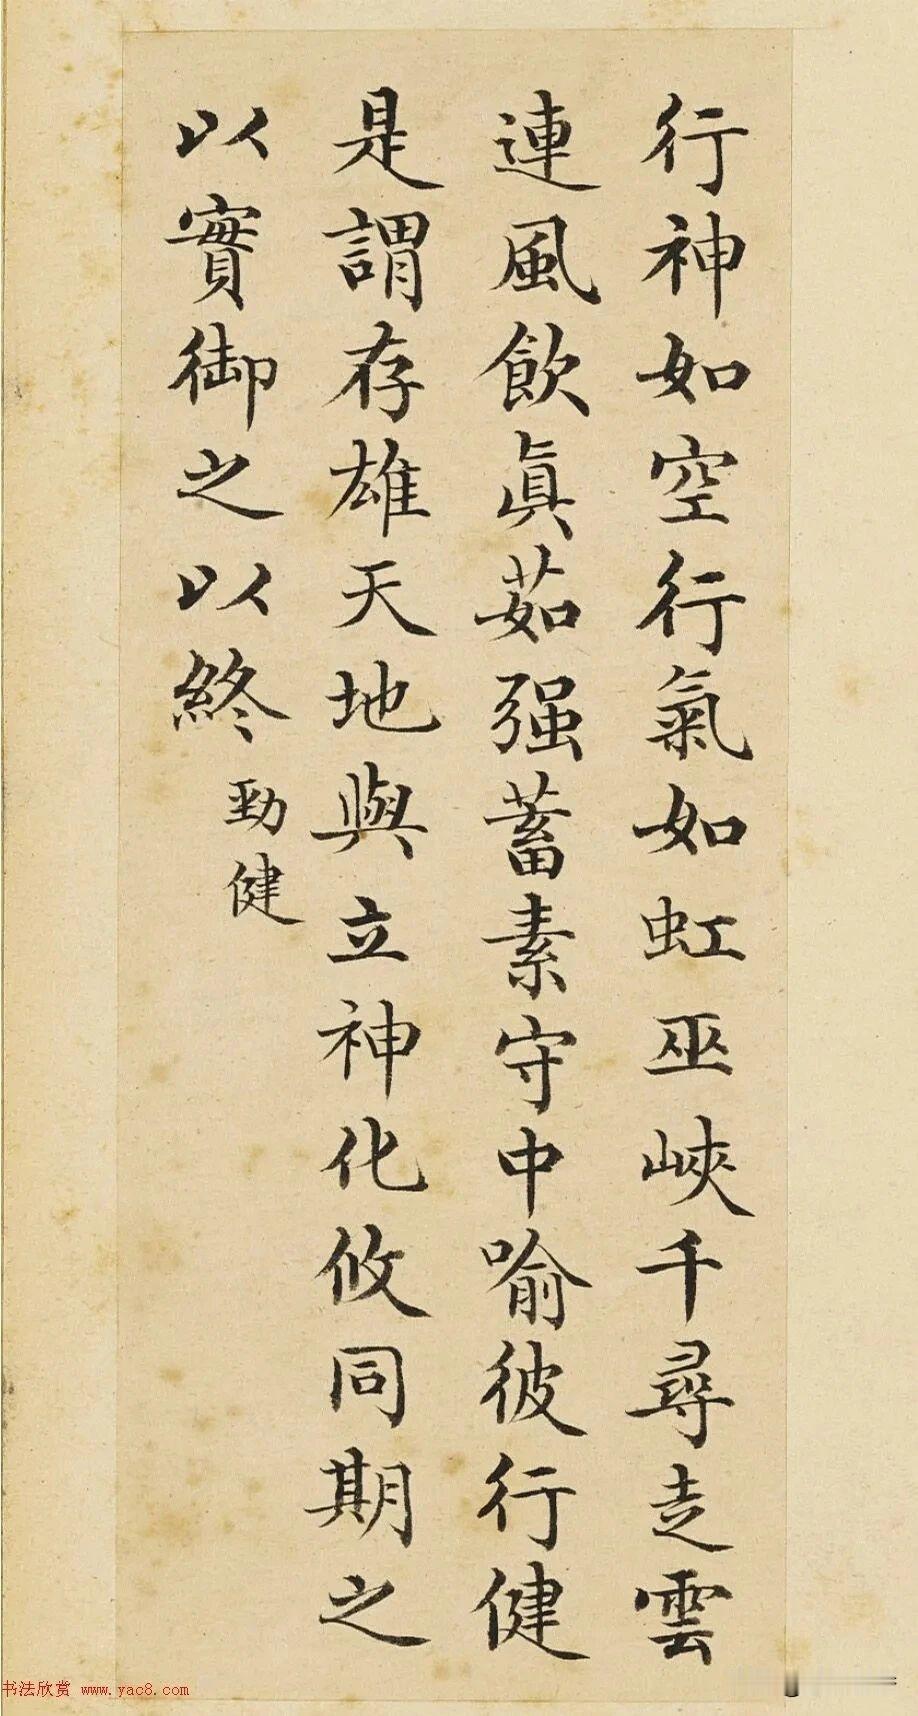 行神如空行氣如虹巫峽千尋走雲
連風飲眞茹强蓄素守中喻彼行健
是謂存雄天地與立神化攸同期之
以實御之以終勁健
书法欣赏 www.yac8.com